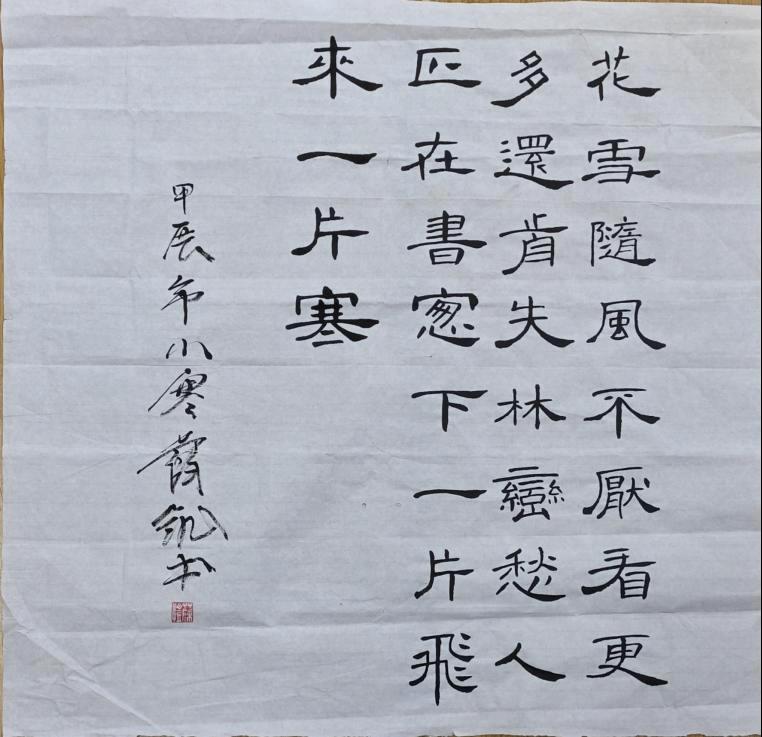 花雪隨風不厭看更
多還肯失林巒愁人
正在書窻下一片飛
來一片寒
甲辰年小寒书